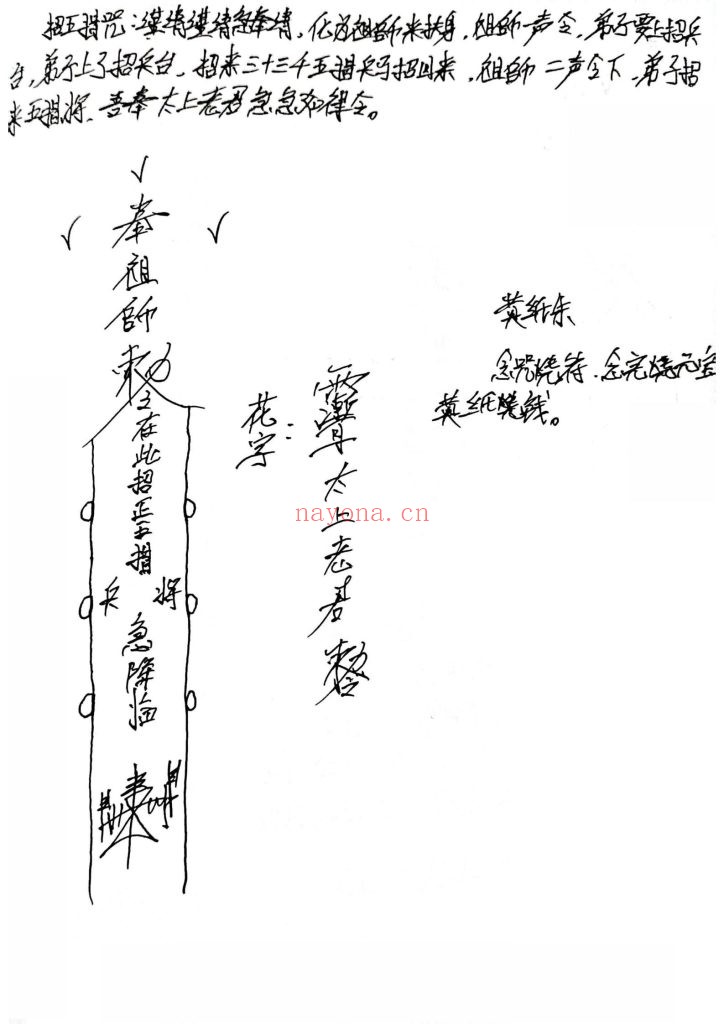 招五猖咒:谨请谨请急奉请,化为祖師来扶身,祖師一声令,弟子要上招兵
台,弟子上了招兵台,招来三十三千五猖兵马招回来,祖師二声令下,弟子招
来五猖将、吾奉太上老君急急如律令。
奉祖師勅
在此招正五猖
兵將
急降临
花字:
太上老君
黄纸朱
念咒烧符、念完烧元宝
黄纸烧钱。
nayona.cn